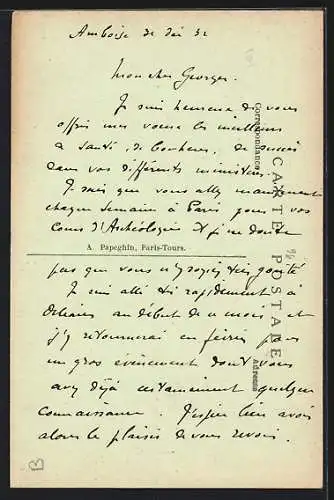 Amboise 31 Déc 31
Mon cher Georges.
Je suis heureux de vous
offrir mes voeux les meilleurs
de santé, de bonheur, de succès
dans vos différents
Je sais que vous allez maintenant
chaque semaine à Paris pour vos
Cours d'Archéologie et je ne doute
A. Papeghin, Paris-Tours.
pas que vous n'y soyiez très goûté
Je suis allé très rapidement à
Orléans au début de ce mois et
j'y retournerai en février pour
un gros événement dont vous
avez déjà certainement quelque
connaissance. J'espère bien avoir
alors le plaisir de vous revoir.
CARTE POSTALE
Correspondance
Adresse
B